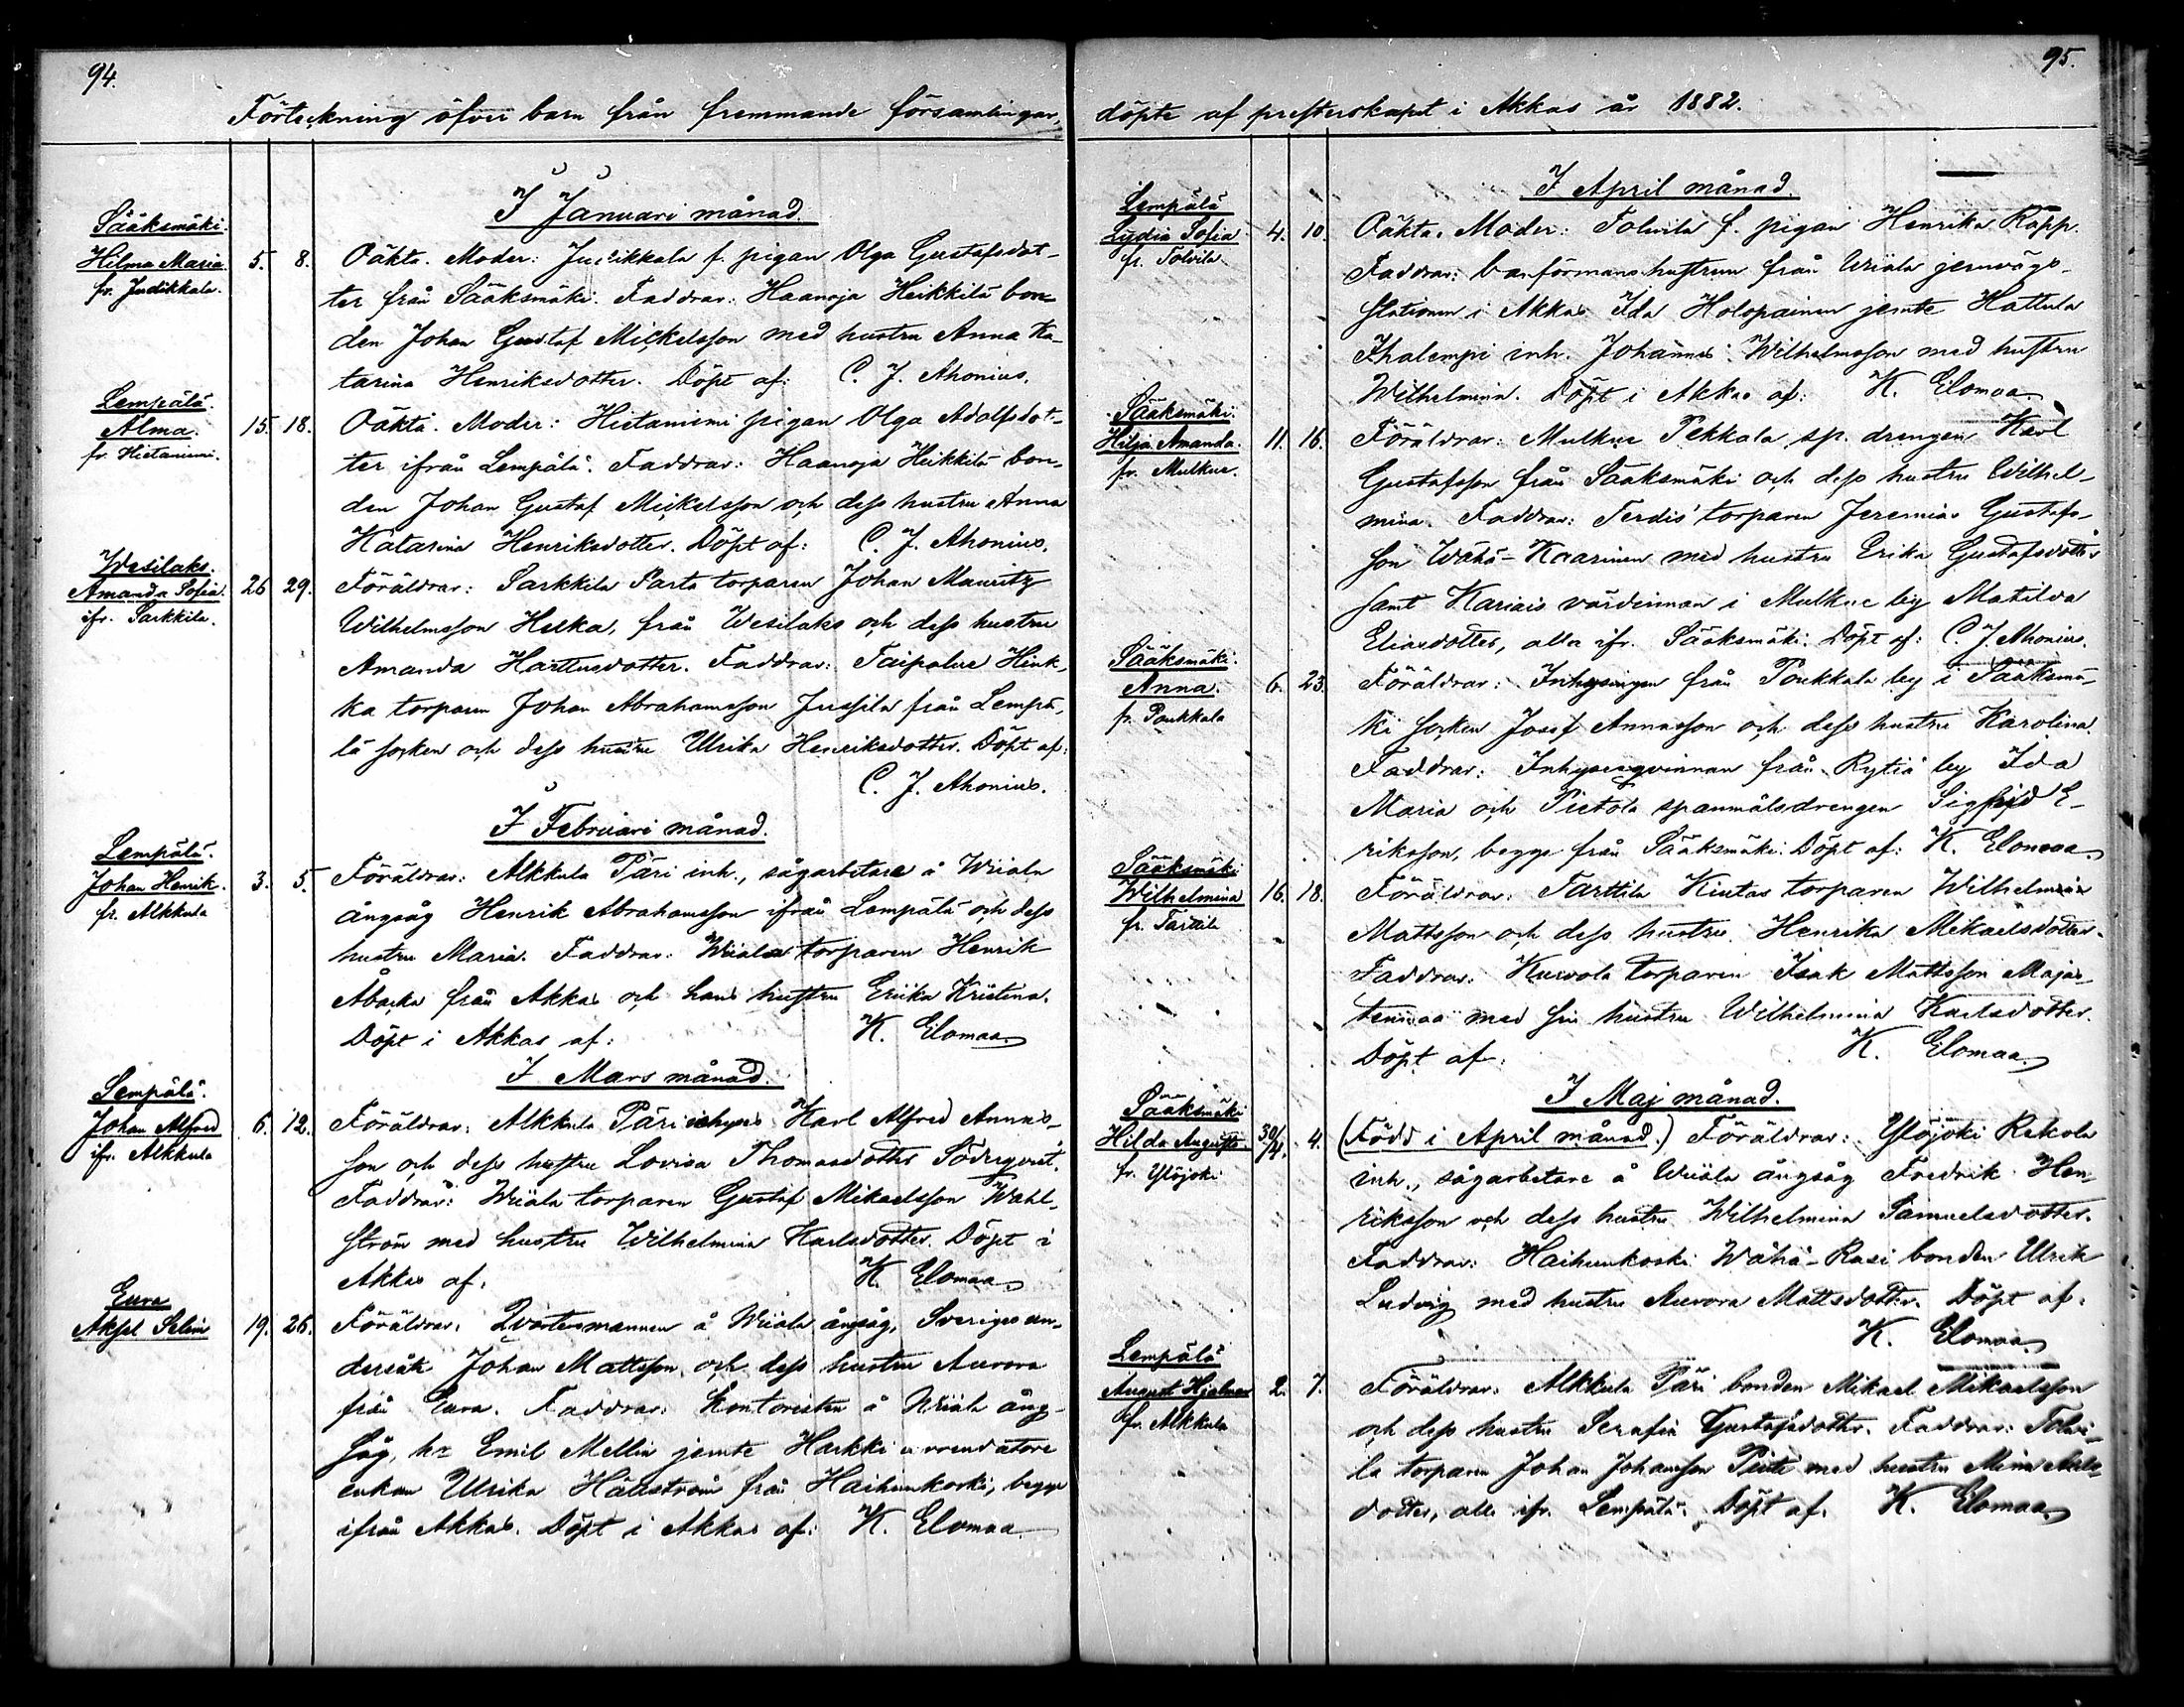 94.
Förteckning öfver barn från fremmande församlingar,
I Januari månad.
Sääksmäki.
Hilma Maria.
fr. Jutikkala.
5. 8. Oäkta. Moder: Jutikkala f. pigan Olga Gustafsdot-
ter från Sääksmäki. Faddrar: Haanoja Heikkilä bon-
den Johan Gustaf Mickelsson med hustru Anna Ka-
tarina Henriksdotter. Döpt af: C. J. Ahonius.
Lempälä.
Alma.
fr. Hietaniemi.
15. 18. Oäkta. Moder: Hietaniemi pigan Olga Adolfsdot-
ter ifrån Lempälä. Faddrar: Haanoja Heikkilä bon-
den Johan Gustaf Mickelsson och dess hustru Anna
Katarina Henriksdotter. Döpt af: C. J. Ahonius.
Wesilaks.
Amanda Sofia.
ifr. Sarkkila.
26 29. Föräldrar: Sarkkila Parta torparen Johan Mauritz
Wilhelmsson Helka, från Wesilaks och dess hustru
Amanda Harttusdotter. Faddrar: Taipalus Hink-
ka torparen Johan Abrahamsson Jussila från Lempä-
lä socken och dess hustru Ulrika Henriksdotter. Döpt af:
C. J. Ahonius.
I Februari månad.
Lempälä.
Johan Henrik.
fr. Alkkula
3. 5. Föräldrar: Alkkula Päri inh., sågarbetare å Wiiala
ångsåg Henrik Abrahamsson ifrån Lempälä och dess
hustru Maria. Faddrar: Wiiala torparen Henrik
Åbacka från Akkas och hans hustru Erika Kristina.
Döpt i Akkas af: K. Elomaa.
I Mars månad.
Lempälä.
Johan Alfred
ifr. Alkkula
6. 12. Föräldrar: Alkkula Päri inhyses Karl Alfred Annas-
son och dess hustru Lovisa Thomasdotter Söderqvist.
Faddrar: Wiiala torparen Gustaf Mikaelsson Wahl-
ström med hustru Wilhelmina Karlsdotter. Döpt i
Akkas af. K. Elomaa.
Eura
Aksel Selim
19. 26. Föräldrar: Qvartersmannen å Wiiala ångsåg, Sveriges un-
dersåte Johan Mattsson, och dess hustru Aurora
från Eura. Faddrar: Kontoristen å Wiiala ång-
såg, hr Emil Mellin jemte Harkki arrendators
enkan Ulrika Häuström från Haihunkoski, begge
ifrån Akkas. Döpt i Akkas af: K. Elomaa.
95.
döpte af presterskapet i Akkas år 1882.
I April månad.
Lempälä
Lydia Sofia.
fr. Tolvila.
4. 10. Oäkta. Moder: Tolvila f. pigan Henrika Ropp.
Faddrar: banförmans hustrun från Wiiala jernvägs-
stationen i Akkas Ida Holopainen jemte Hattula
Ihalempi inh. Johannes Wilhelmsson med hustru
Wilhelmina. Döpt i Akkas af: K. Elomaa.
Sääksmäki.
Hilja Amanda.
fr. Mulkue.
11. 16. Föräldrar: Mulkue Pekkala sp. drengen Karl
Gustafsson från Sääksmäki och dess hustru Wilhel-
mina. Faddrar: Ferdis' torparen Jeremias Gustafs-
son Wähä-Kaarinen med hustru Erika Gustafsdotter
samt Kariais värdinnan i Mulkue by Matilda
Eliasdotter, alla ifr. Sääksmäki. Döpt af: C. J. Ahonius.
Sääksmäki.
Anna.
fr. Poukkala
6. 23. Föräldrar: Inhysingen från Poukkala by i Sääksmä-
ki socken Josef Annasson och dess hustru Karolina.
Faddrar: Inhysesqvinnan från Rytiä by Ida
Maria och Pietola spanmålsdrengen Sigfrid E-
riksson, begge från Sääksmäki. Döpt af: K. Elomaa.
Sääksmäki
Wilhelmina
fr. Tarttila
16. 18. Föräldrar: Tarttila Kiutas torparen Wilhelm
Mattsson och dess hustru Henrika Mikaelsdotter.
Faddrar: Kurvola torparen Isak Mattsson Majas-
tenmaa med sin hustru Wilhelmina Karlsdotter.
Döpt af: K. Elomaa.
I Maj månad.
Sääksmäki
Hilda Augusta.
fr. Ylöjoki
30/4. 4. (Född i April månad.) Föräldrar: Ylöjoki Rekola
inh., sågarbetare å Wiiala ångsåg Fredrik Hen-
riksson och dess hustru Wilhelmina Samuelsdotter.
Faddrar: Haihunkoski Wähä-Rasi bonden Ulrik
Ludvig med hustru Aurora Mattsdotter. Döpt af.
K. Elomaa.
Lempälä
August Hjalmar
fr. Alkkula
2. 7. Föräldrar: Alkkula Päri bonden Mikael Mikaelsson
och dess hustru Serafia Gustafsdotter. Faddrar: Tolvi-
la torparen Johan Johansson Piite med hustru Mina
dotter, alla ifr. Lempälä. Döpt af. K. Elomaa.